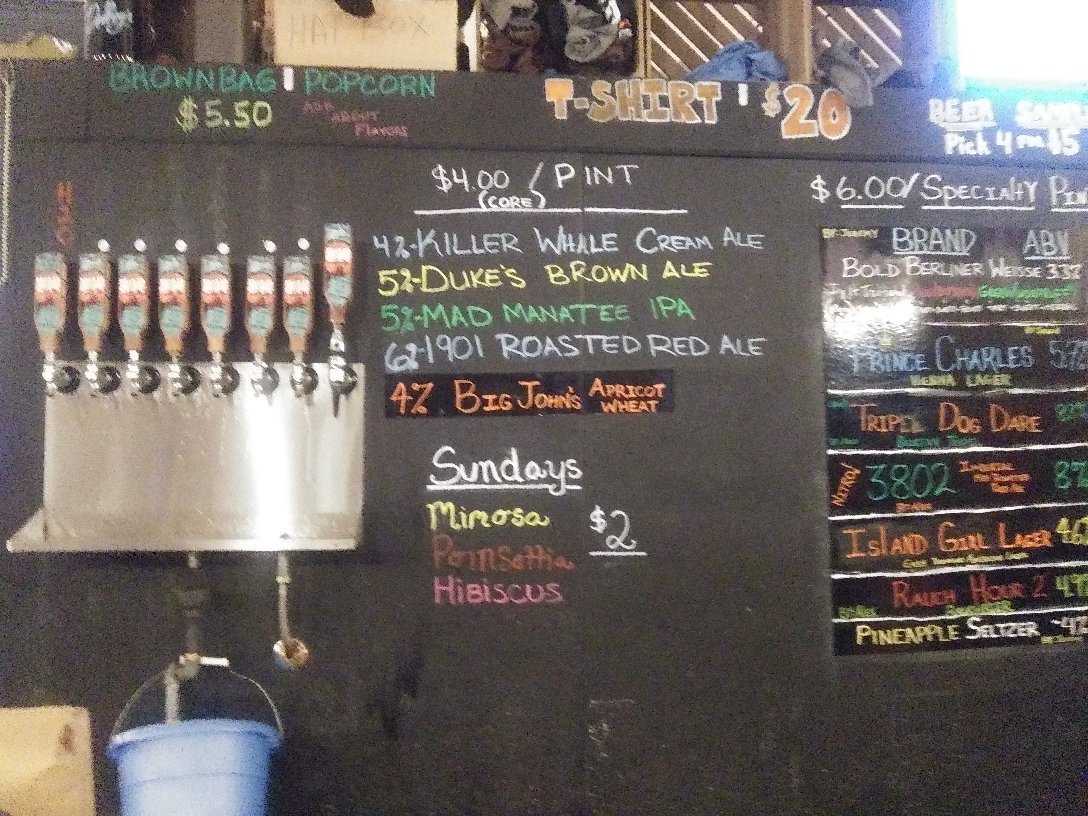 HAT BOX
BROWNBAG POPCORN
$5.50
ASK ABOUT FLAVORS
T-SHIRT $20
BEER
Pick 4 FOR $5
$4.00 / PINT
(CORE)
4%-KILLER WHALE CREAM ALE
5%-DUKE'S BROWN ALE
5%-MAD MANATEE IPA
6%-1901 ROASTED RED ALE
4% BIG JOHN'S APRICOT WHEAT
Sundays
Mimosa
Poinsettia
HIBISCUS
$2
$6.00/SPECIALTY
BRAND ABV
BOLD BERLINER WEISSE 3.3%
PRINCE CHARLES
VIENNA LAGER
TRIPEL DOG DARE
NITRO!
3802
IMPERIAL
ISLAND GIRL LAGER 4.6
RAUCH HOUR 2
PINEAPPLE SELTZER ~4%